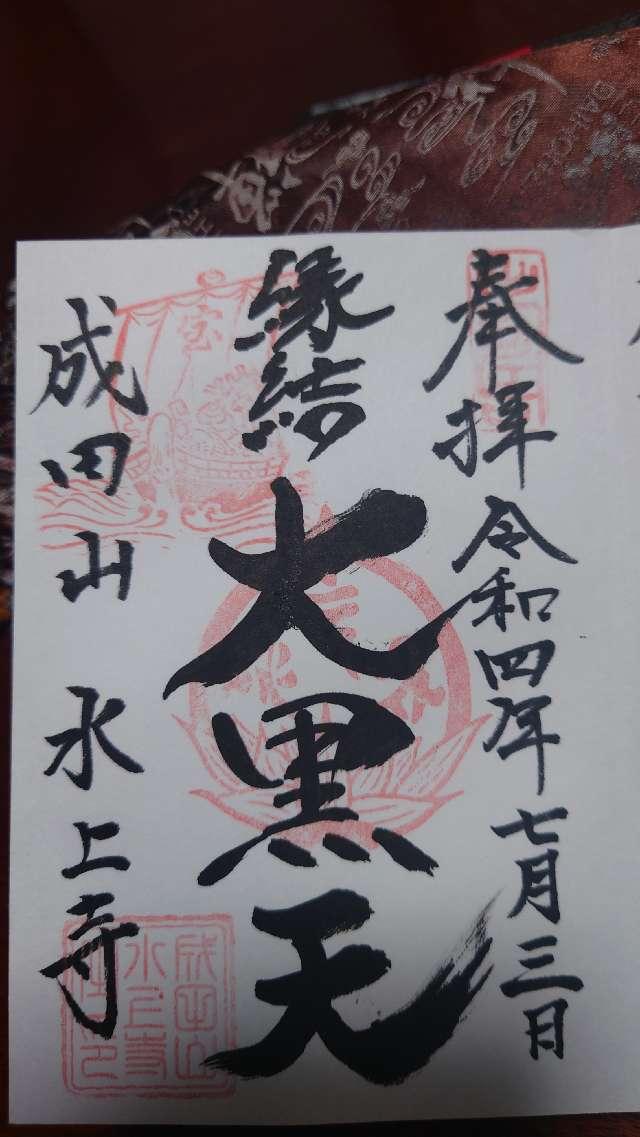 奉拝 令和四年七月三日
縁結 大黒天
成田山 水上寺
宝
成田山
水上寺